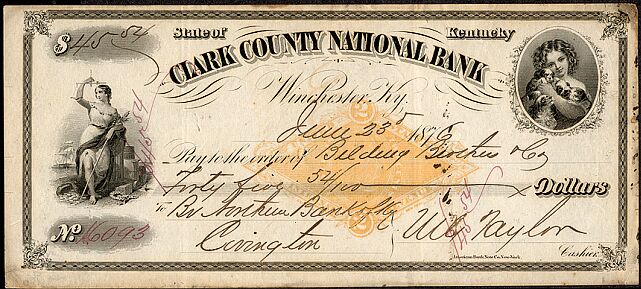 $45 54
State of Kentucky
CLARK COUNTY NATIONAL BANK
Winchester, Ky.
June 23 1876
Pay to the order of Belding Brothers & Co
Forty five 54/100 Dollars
To Br Northern Bank of Ky
Covington
Taylor
Cashier.
No. 6093
$45 54
$45 54
2
2
American Bank Note Co. New York.